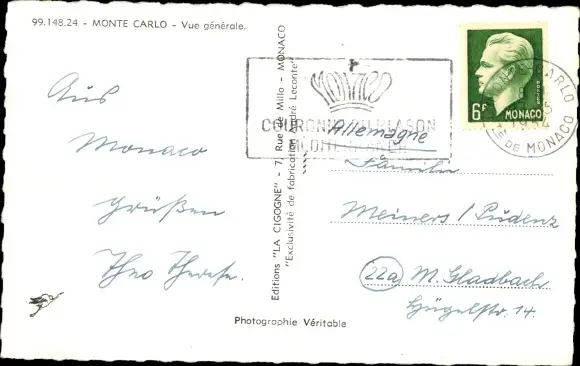 99.148.24 - MONTE CARLO - Vue générale.
Aus
Monaco
Grüßen
Theo Therese.
Editions "LA CIGOGNE" - 7, Rue du Millo - MONACO
"Exclusivité de fabrication André Leconte"
MONACO
COURONNE DU BLASON
6F
MONACO
MONTE-CARLO
1954
Pté DE MONACO
Allemagne
Familie
Meiners / Pudenz
22a M. Gladbach
Hügelstr. 14.
Photographie Véritable